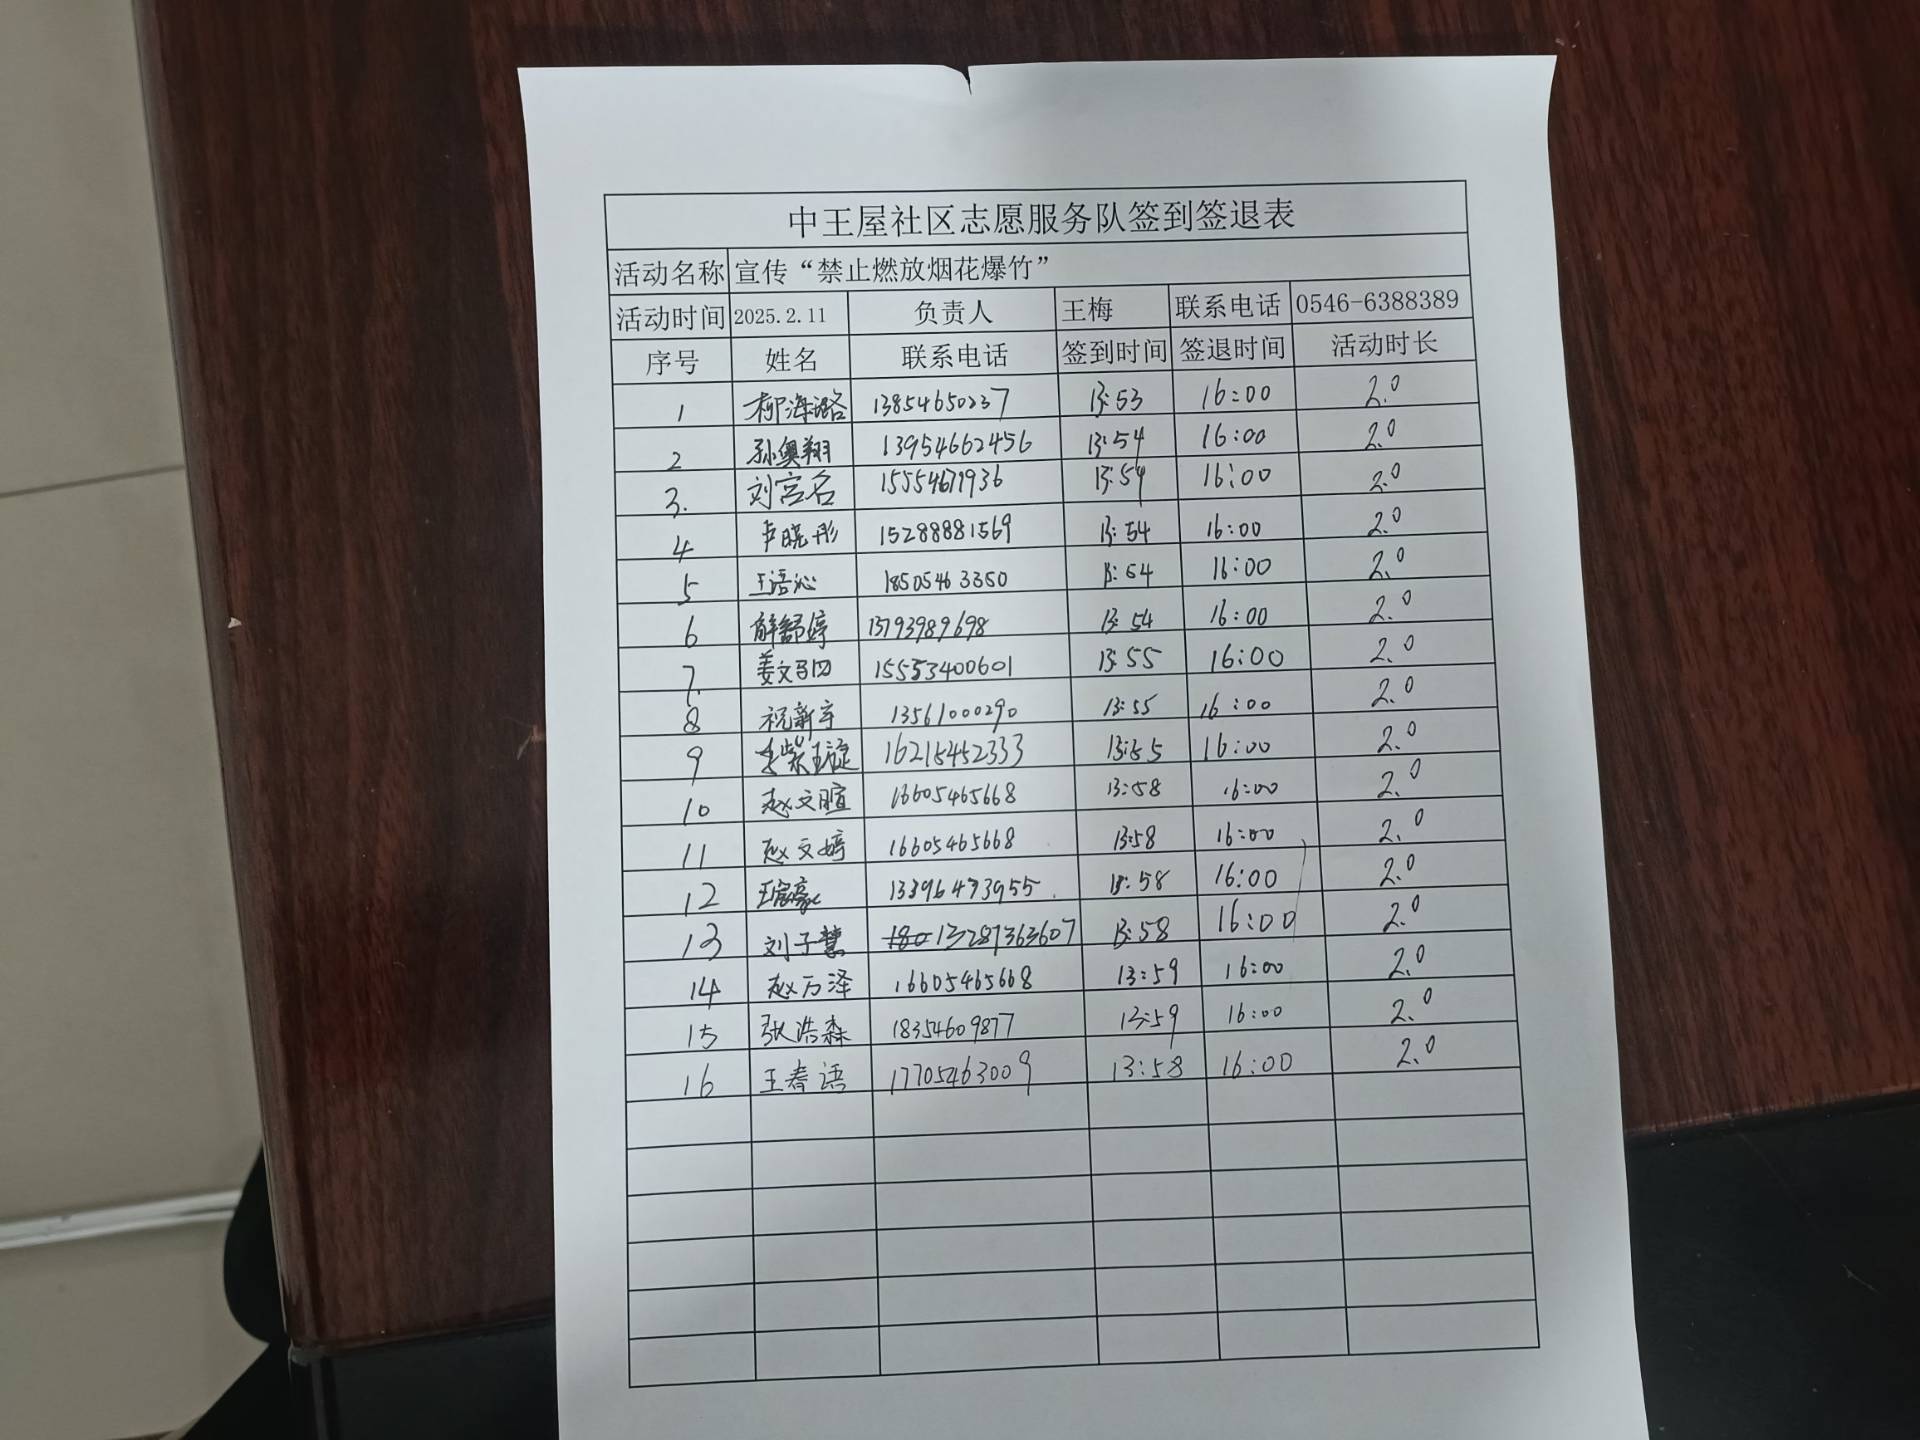 中王屋社区志愿服务队签到签退表
活动名称 宣传“禁止燃放烟花爆竹”
活动时间 2025.2.11 负责人 王梅 联系电话 0546-6388389
序号 姓名 联系电话 签到时间 签退时间 活动时长
1 柳海潞 13854650237 13:53 16:00 2.0
2 孙奥翔 13954662456 13:54 16:00 2.0
3. 刘宫名 15554671936 13:54 16:00 2.0
4 卢晓彤 15288881569 13:54 16:00 2.0
5 王语沁 18505463350 13:54 16:00 2.0
6 解舒婷 13793989698 13:54 16:00 2.0
7. 姜文 15553400601 13:55 16:00 2.0
8 祝新宇 13561000290 13:55 16:00 2.0
9 16215452333 13:55 16:00 2.0
10 赵文暄 16605465668 13:58 16:00 2.0
11 赵文婷 16605465668 13:58 16:00 2.0
12 13396473955 13:58 16:00 2.0
13 刘子慧 13287363607 13:58 16:00 2.0
14 赵万泽 16605465668 13:59 16:00 2.0
15 张浩森 18354609877 13:59 16:00 2.0
16 王春语 17705463009 13:58 16:00 2.0